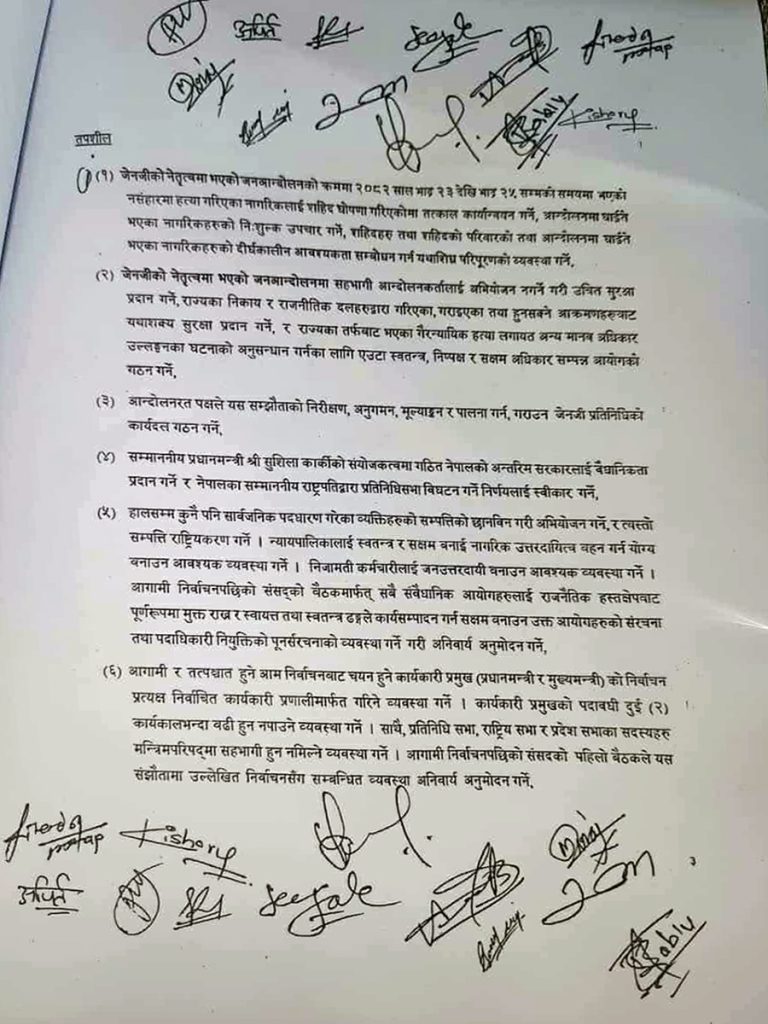 अर्पित
Seejale
Birendra
pratap
Manoj
Bablu
Kishory
तपशील
(१) जेनजीको नेतृत्वमा भएको जनआन्दोलनको क्रममा २०८२ साल भाद्र २३ देखि भाद्र २५ सम्मको समयमा भएको
नरसंहारमा हत्या गरिएका नागरिकलाई शहिद घोषणा गरिएकोमा तत्काल कार्यान्वयन गर्ने, आन्दोलनमा घाईते
भएका नागरिकहरुको निःशुल्क उपचार गर्ने, शहिदहरु तथा शहिदको परिवारको तथा आन्दोलनमा घाईते
भएका नागरिकहरुको दीर्घकालीन आवश्यकता सम्बोधन गर्न यथाशिघ्र परिपूरणको व्यवस्था गर्ने,
(२) जेनजीको नेतृत्वमा भएको जनआन्दोलनमा सहभागी आन्दोलनकर्तालाई अभियोजन नगर्ने गरी उचित सुरक्षा
प्रदान गर्ने, राज्यका निकाय र राजनीतिक दलहरुद्वारा गरिएका, गराइएका तथा हुनसक्ने आक्रमणहरुबाट
यथाशक्य सुरक्षा प्रदान गर्ने, र राज्यका तर्फबाट भएका गैरन्यायिक हत्या लगायत अन्य मानव अधिकार
उल्लङ्घनका घटनाको अनुसन्धान गर्नका लागि एउटा स्वतन्त्र, निष्पक्ष र सक्षम अधिकार सम्पन्न आयोगको
गठन गर्ने,
(३) आन्दोलनरत पक्षले यस सम्झौताको निरीक्षण, अनुगमन, मूल्याङ्कन र पालना गर्न, गराउन जेनजी प्रतिनिधिको
कार्यदल गठन गर्ने,
(४) सम्माननीय प्रधानमन्त्री श्री सुशिला कार्कीको संयोजकत्वमा गठित नेपालको अन्तरिम सरकारलाई वैधानिकता
प्रदान गर्ने र नेपालका सम्माननीय राष्ट्रपतिद्वारा प्रतिनिधिसभा बिघटन गर्ने निर्णयलाई स्वीकार गर्ने,
(५) हालसम्म कुनै पनि सार्वजनिक पदधारण गरेका व्यक्तिहरुको सम्पत्तिको छानविन गरी अभियोजन गर्ने, र त्यस्तो
सम्पत्ति राष्ट्रियकरण गर्ने । न्यायपालिकालाई स्वतन्त्र र सक्षम बनाई नागरिक उत्तरदायित्व वहन गर्न योग्य
बनाउन आवश्यक व्यवस्था गर्ने । निजामती कर्मचारीलाई जनउत्तरदायी बनाउन आवश्यक व्यवस्था गर्ने ।
आगामी निर्वाचनपछिको संसद्को बैठकमार्फत् सबै संवैधानिक आयोगहरुलाई राजनैतिक हस्तक्षेपबाट
पूर्णरूपमा मुक्त राख्न र स्वायत्त तथा स्वतन्त्र ढङ्गले कार्यसम्पादन गर्न सक्षम बनाउन उक्त आयोगहरुको संरचना
तथा पदाधिकारी नियुक्तिको पूनर्संरचनाको व्यवस्था गर्ने गरी अनिवार्य अनुमोदन गर्ने,
(६) आगामी र तत्पश्चात हुने आम निर्वाचनबाट चयन हुने कार्यकारी प्रमुख (प्रधानमन्त्री र मुख्यमन्त्री) को निर्वाचन
प्रत्यक्ष निर्वाचित कार्यकारी प्रणालीमार्फत गरिने व्यवस्था गर्ने । कार्यकारी प्रमुखको पदावधी दुई (२)
कार्यकालभन्दा बढी हुन नपाउने व्यवस्था गर्ने । साथै, प्रतिनिधि सभा, राष्ट्रिय सभा र प्रदेश सभाका सदस्यहरु
मन्त्रिमपरिषद्‌मा सहभागी हुन नमिल्ने व्यवस्था गर्ने । आगामी निर्वाचनपछिको संसदको पहिलो बैठकले यस
संझौतामा उल्लेखित निर्वाचनसँग सम्बन्धित व्यवस्था अनिवार्य अनुमोदन गर्ने,
Birendra
pratap
Kishory
Manoj
अर्पित
Seejale
Bablu